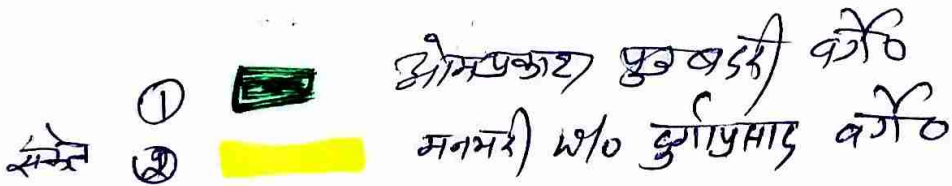 ① ओमप्रकाश पुत्र बद्री वगै०
संकेत ② मनभरी w/o दुर्गाप्रसाद वगै०